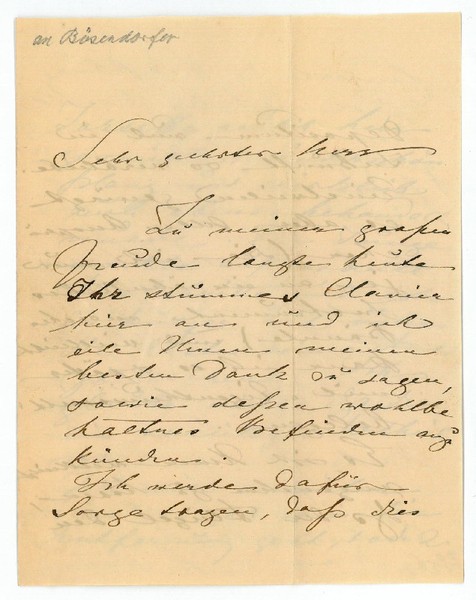 an Bösendorfer
Sehr geehrter Herr
Zu meiner großen
Freude langte heute
Ihr stummes Clavier
hier an und ich
eile Ihnen meinen
besten Dank zu sagen,
sowie dessen wohlbe
haltnes Befinden
künden.
Ich werde dafür
Sorge tragen, daß dies